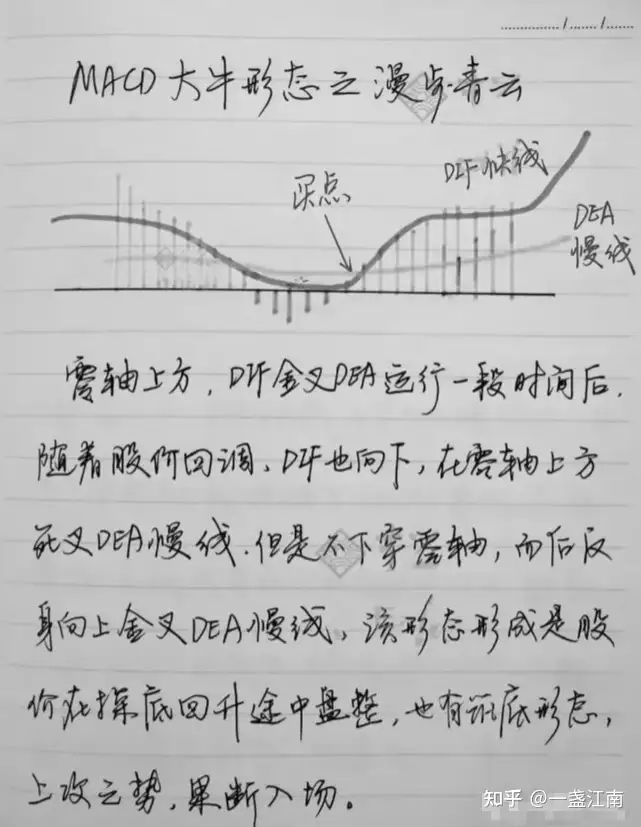 MACD大牛形态之漫步青云
买点
DIF快线
DEA
慢线
零轴上方，DIF金叉DEA运行一段时间后，
随着股价回调、DIF也向下，在零轴上方
死叉DEA慢线.但是不下穿零轴，而后反
身向上金叉DEA慢线，该形态形成是股
价在探底回升途中盘整，也有筑底形态，
上攻之势，果断入场。
知乎 @一盏江南